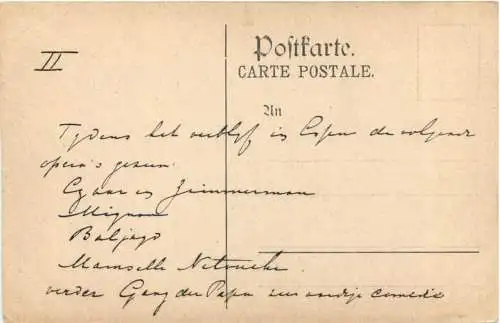 II
Postkarte.
CARTE POSTALE.
An
Tydens het verblyf in Essen de volgende
opera's gezien:
Czaar en Zimmerman
Mignon
Baljazo
Mamselle Nitouche
verder een aardige comedie